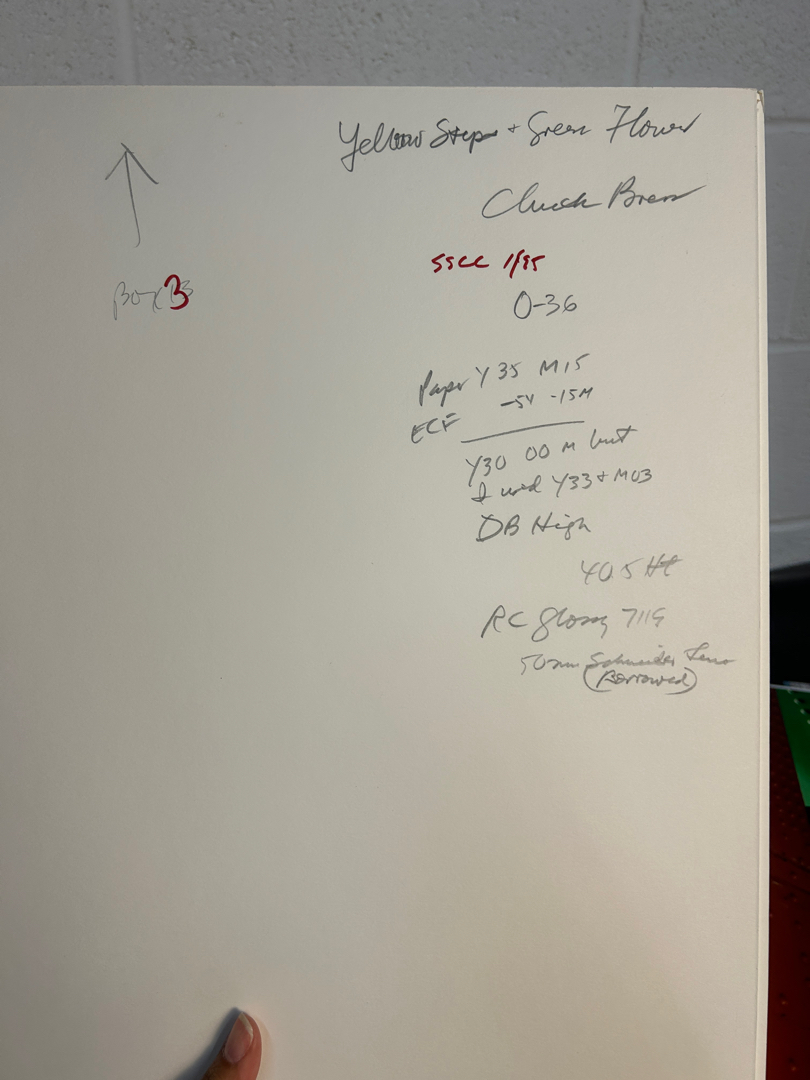 Yellow Steps + Green Flower
Chuck
SSCC 1/95
Box 3
0-36
Paper Y 35 M15
ECF -5Y -15M
Y30 00 M but
I used Y33 + M03
DB High
40.5 Ht
RC Glossy
50mm Schneider Lens
(Borrowed)